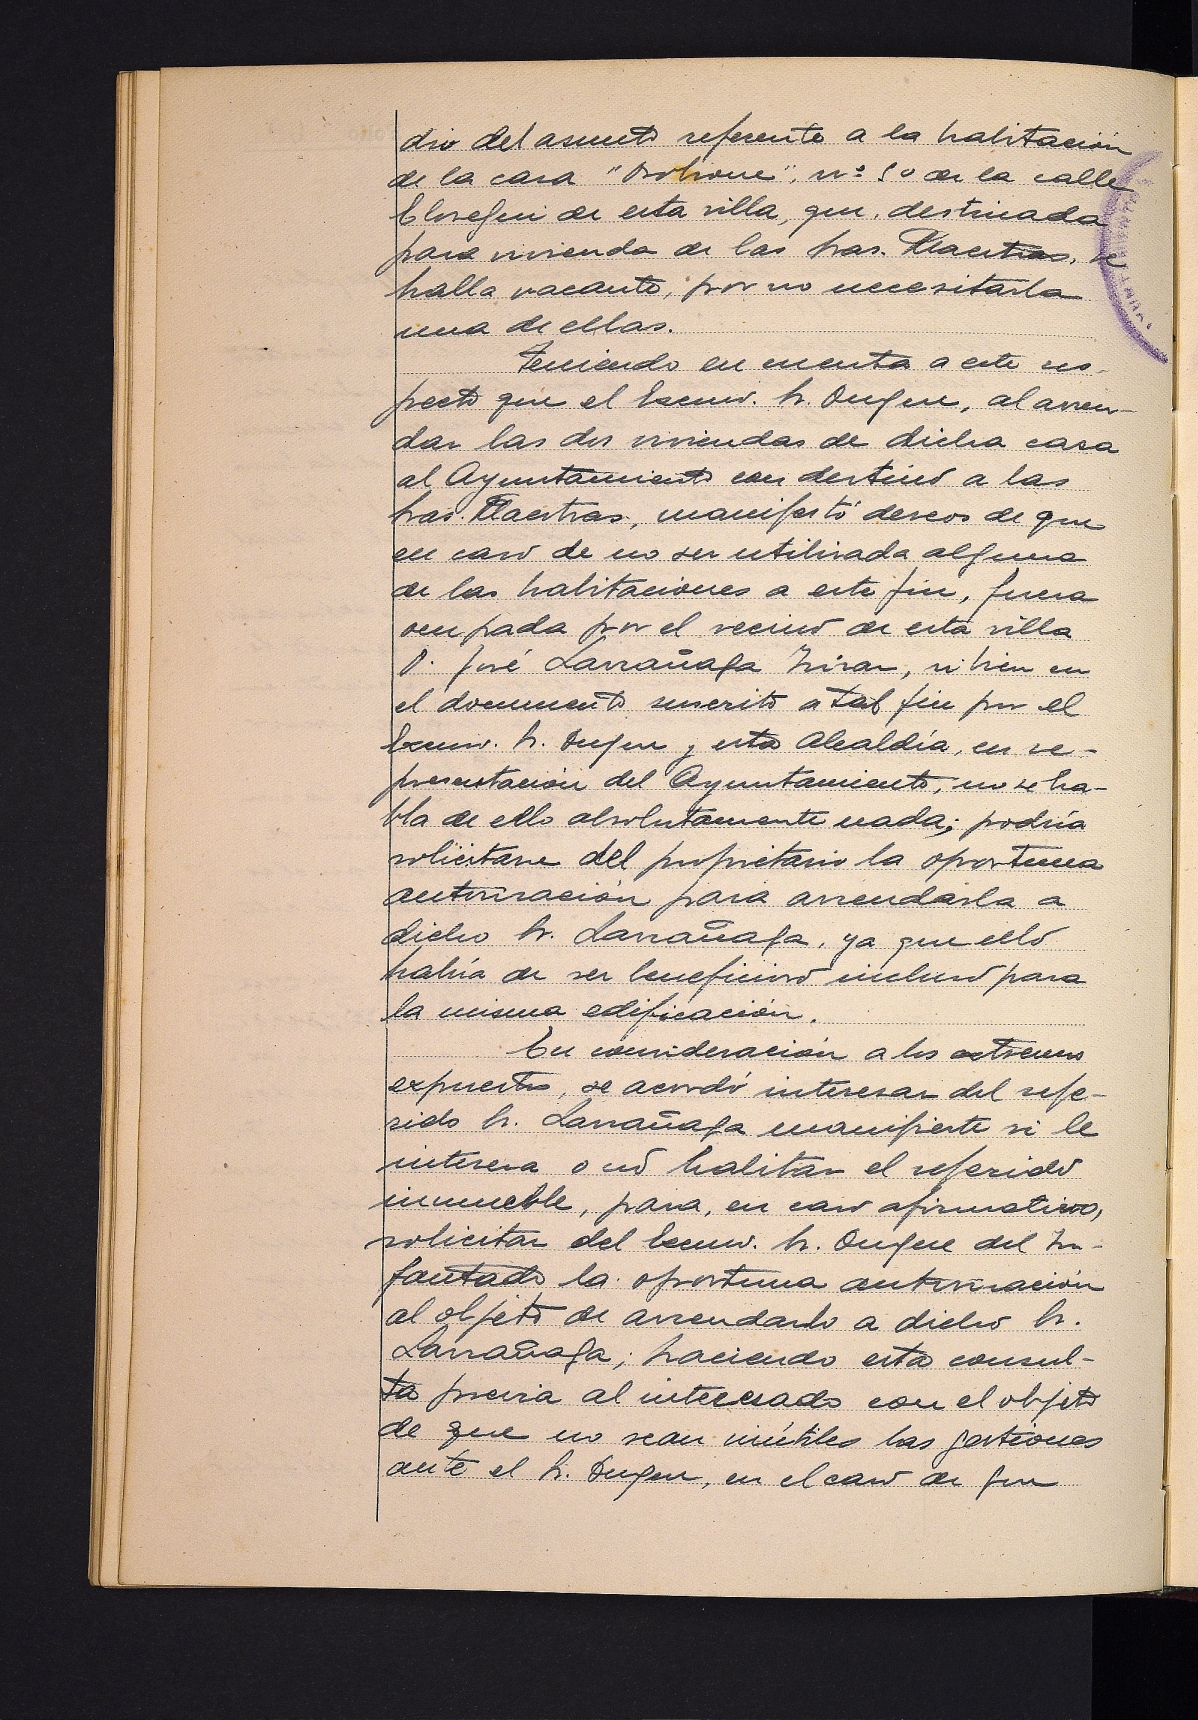 dio del asunto referente a la habitación
de la casa " nº 50 de la calle
Elosegui de esta villa, que, destinada
para vivienda de las Sras. Maestras, se
halla vacante, por no necesitarla
una de ellas.
Teniendo en cuenta a este res-
pecto que el Excmo. Sr. Duque, al arren-
dar las dos viviendas de dicha casa
al Ayuntamiento con destino a las
Sras. Maestras, manifestó deseos de que
en caso de no ser utilizada alguna
de las habitaciones a este fin, fuera
ocupada por el vecino de esta villa
D. José Larrañaga, si bien en
el documento suscrito a tal fin por el
Excmo. Sr. Duque y esta Alcaldía, en re-
presentación del Ayuntamiento, no se ha-
bla de ello absolutamente nada; podría
solicitarse del propietario la oportuna
autorización para arrendarla a
dicho Sr. Larrañaga, ya que ello
había de ser beneficioso incluso para
la misma edificación.
En consideración a los extremos
expuestos, se acordó interesar del refe-
rido Sr. Larrañaga manifieste si le
interesa o nó habitar el referido
inmueble, para, en caso afirmativo,
solicitar del Excmo. Sr. Duque del In-
fantado la oportuna autorización
al objeto de arrendarlo a dicho Sr.
Larrañaga; haciendo esta consul-
ta previa al interesado con el objeto
de que no sean inútiles las gestiones
ante el Sr. Duque, en el caso de que